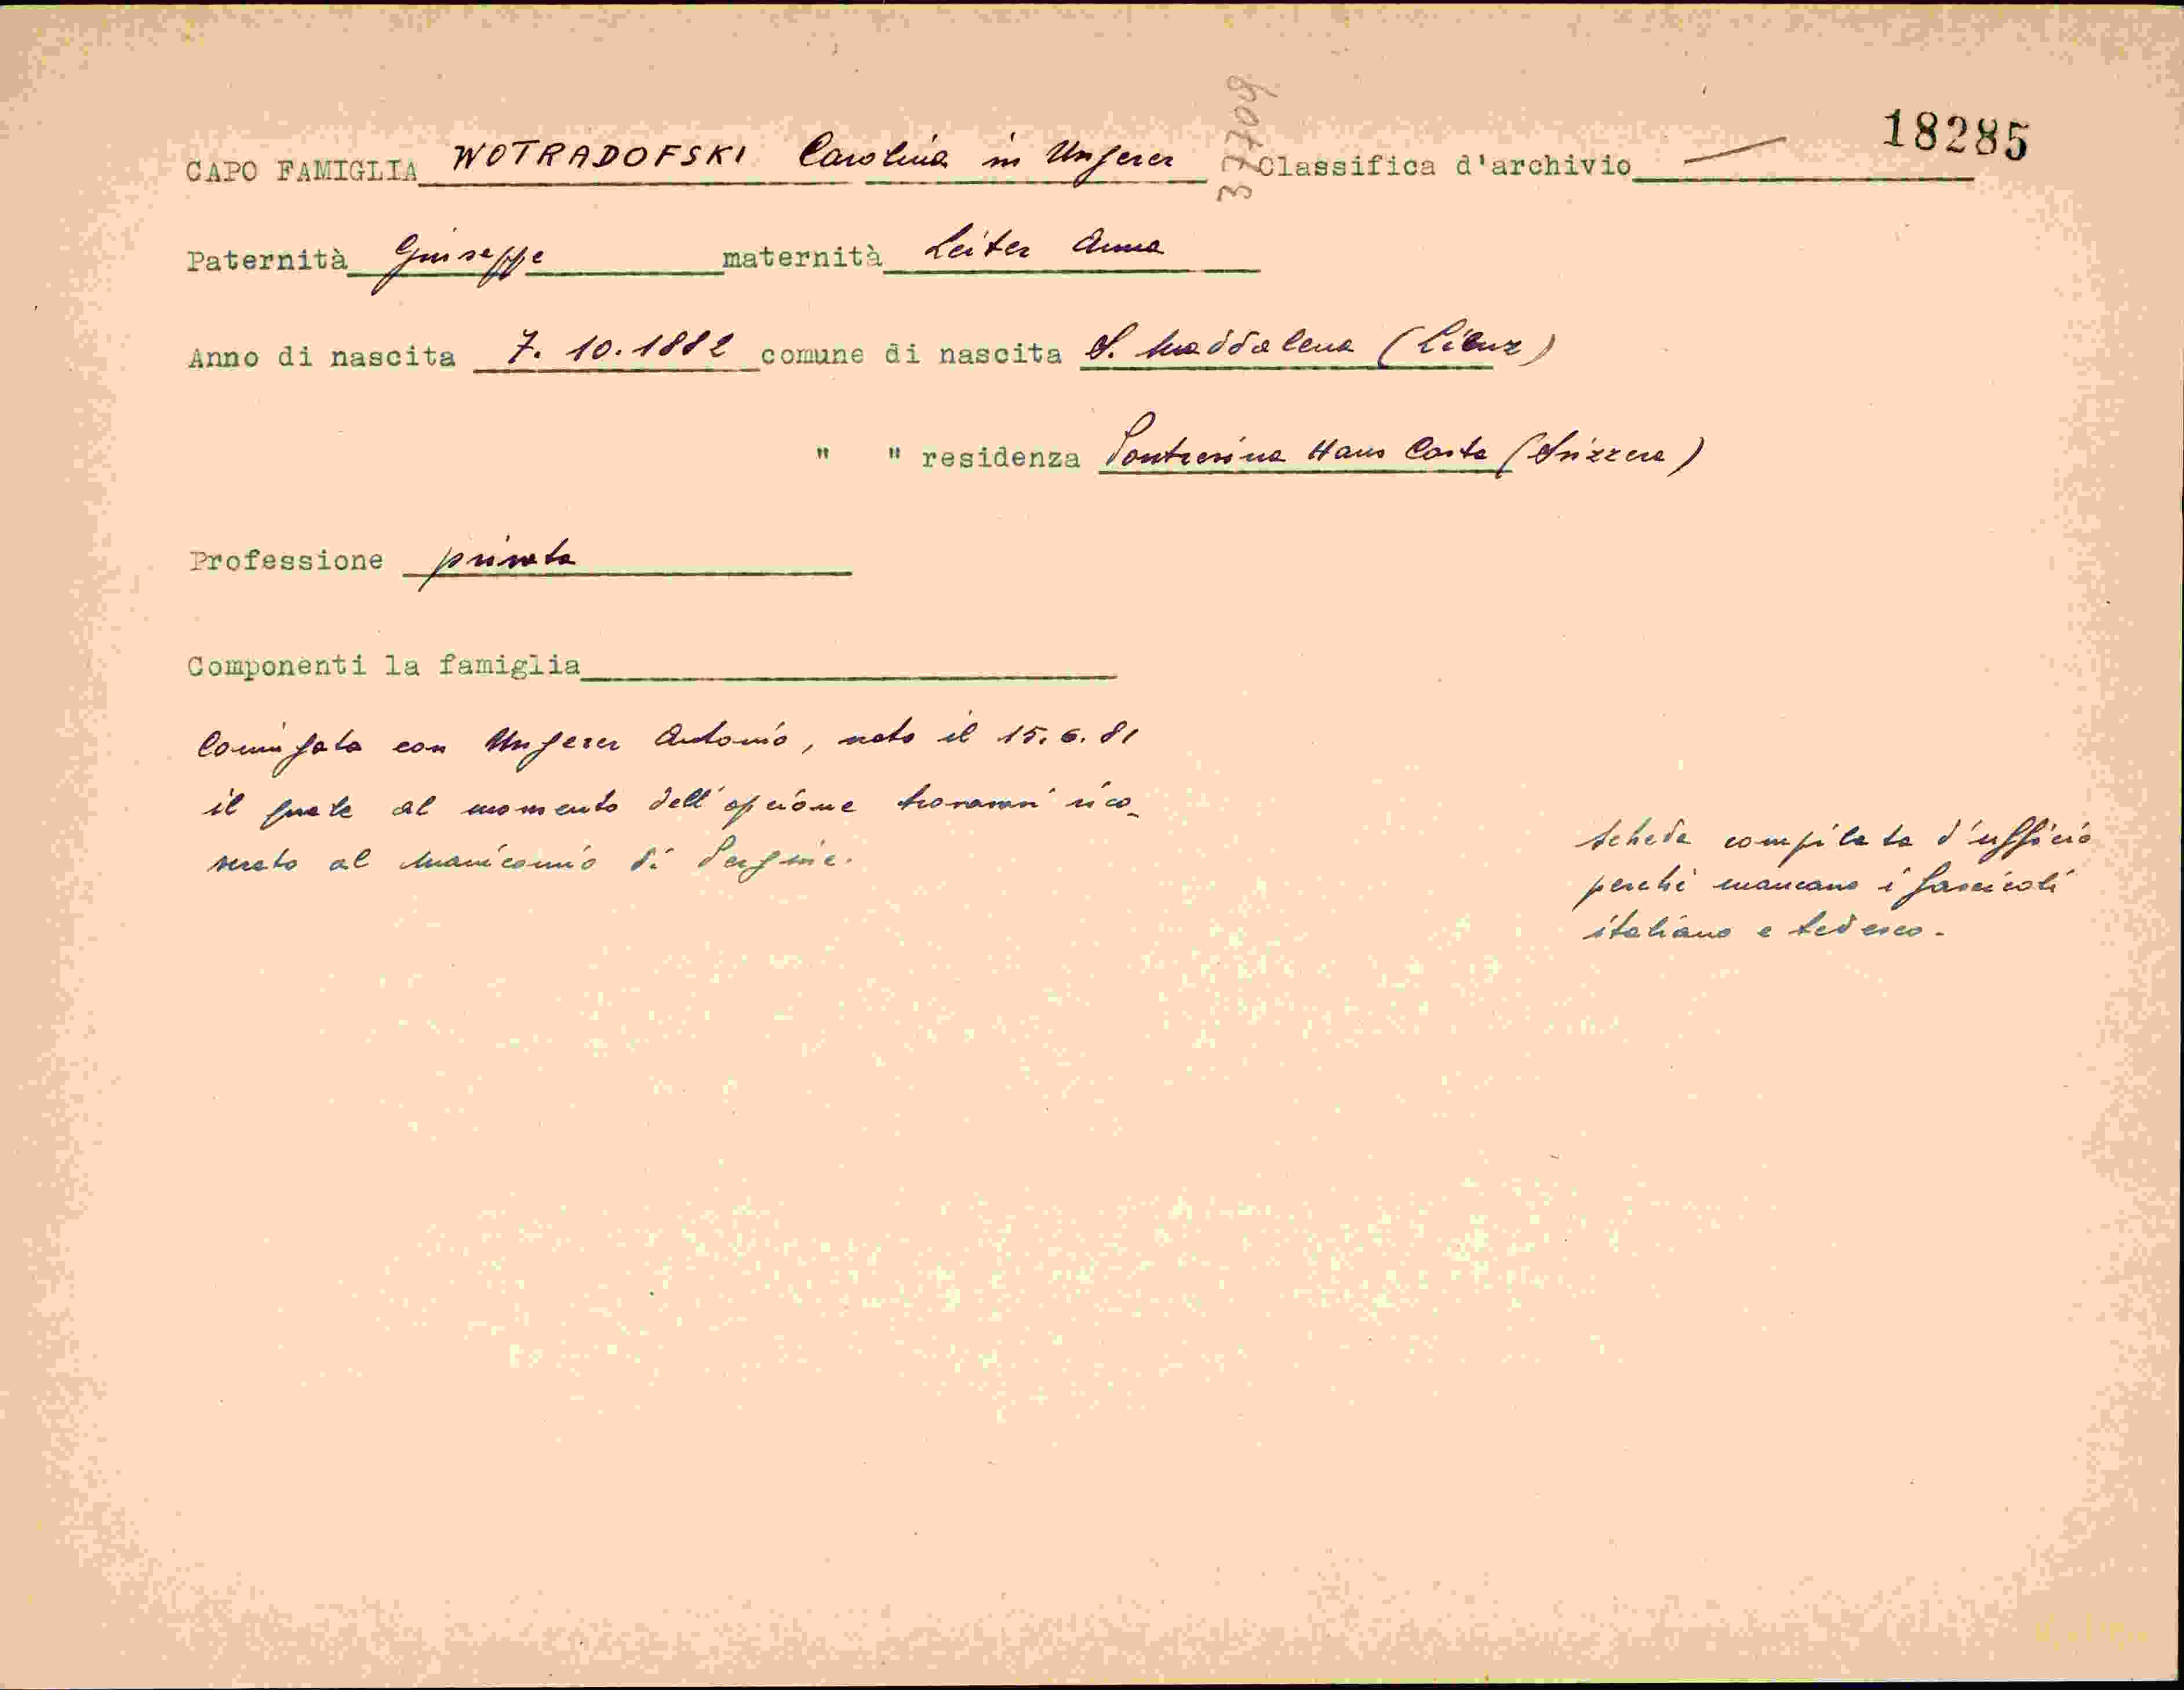 18285
37709
CAPO FAMIGLIA WOTRADOFSKI Carolina in Ungerer Classifica d'archivio —
Paternità Giuseppe maternità Leiter Anna
Anno di nascita 7. 10. 1882 comune di nascita S. Maddalena (Lienz)
" " residenza Pontresina Haus Costa (Svizzera)
Professione privata
Componenti la famiglia
Coniugata con Ungerer Antonio, nato il 15. 6. 81
il quale al momento dell'opzione trovavasi rico-
verato al Manicomio di Pergine.
Scheda compilata d'ufficio
perchè mancano i fascicoli
italiano e tedesco.